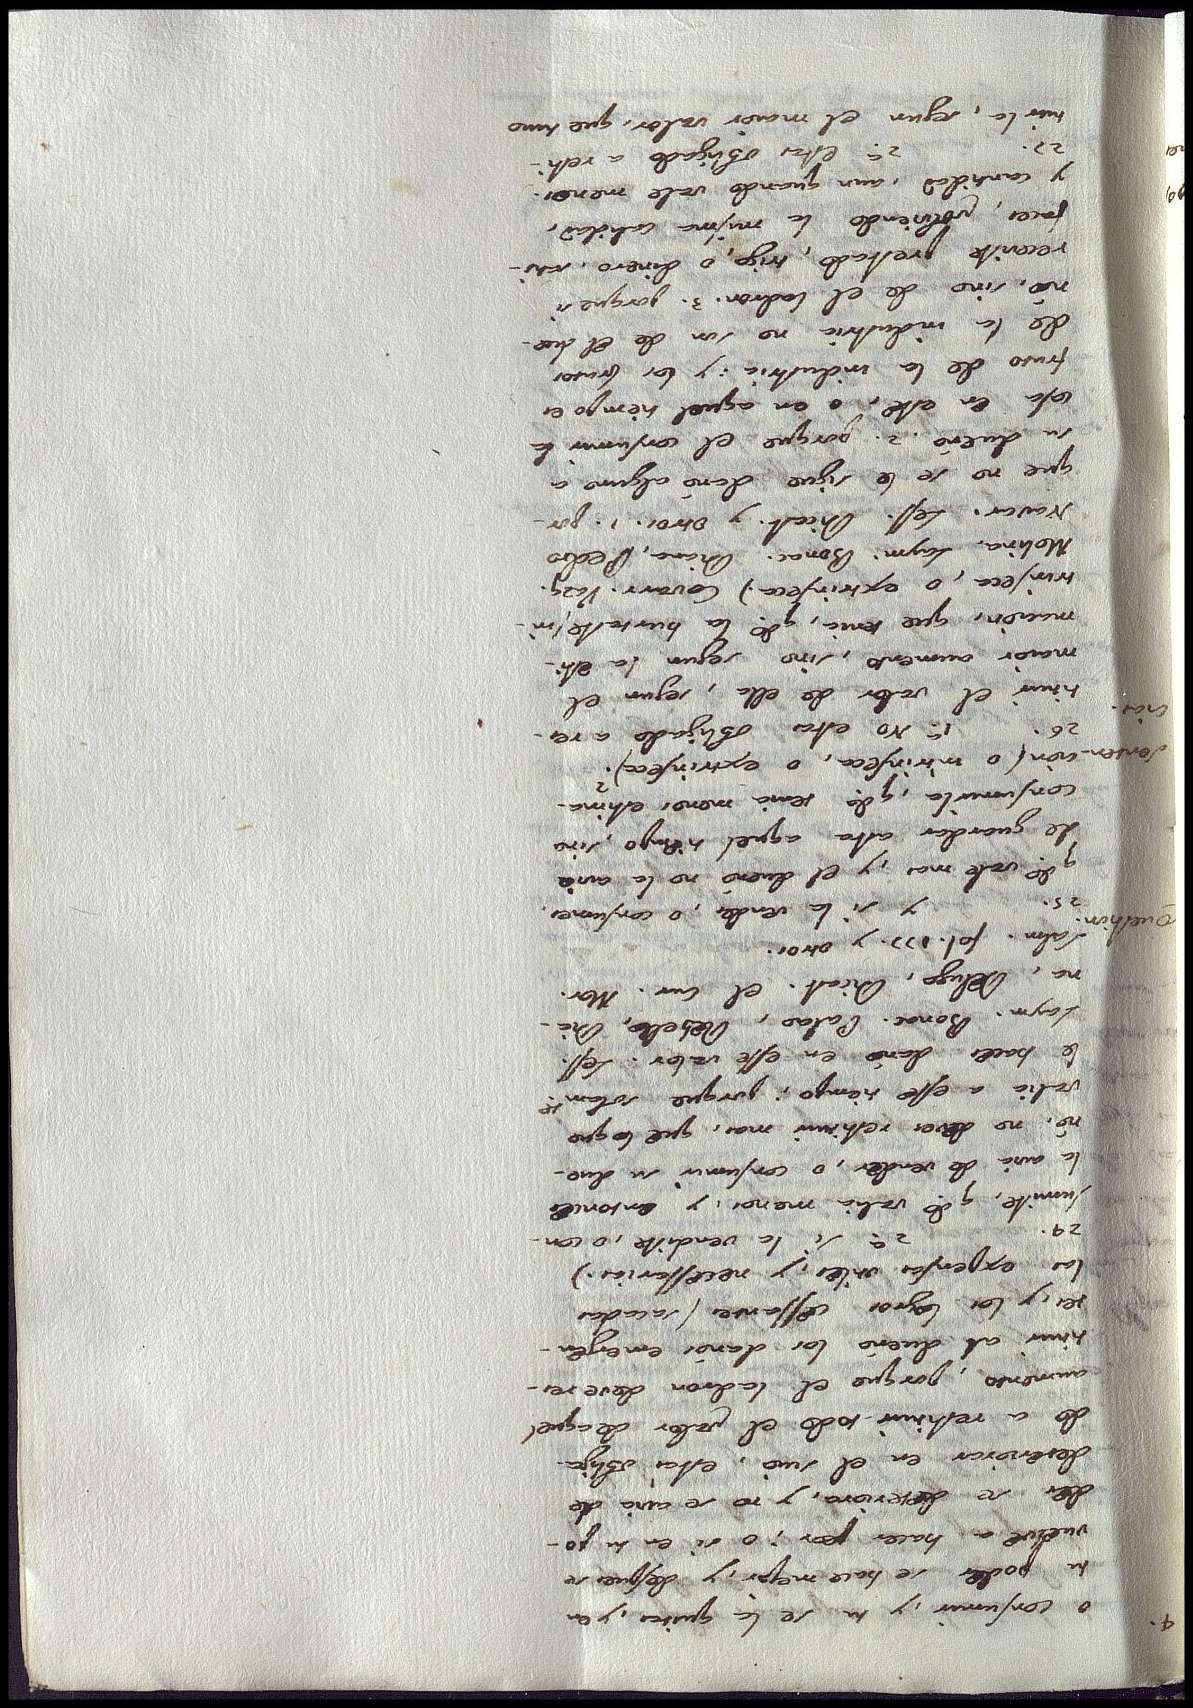 o consumir, y tu se la quitas, y en
tu poder se hace mejor, y despues se
vuelve a hacer peor; o si en tu po-
der se deteriora, y no se avia de
deteriorar en el suio, estas obliga-
do a restituir todo el valor de aquel
aumento, porque el ladron deve res-
tituir al dueño los daños emergen-
tes, y los logros cessantes (sacadas
las expensas utiles, y necessarias.)
24. 2º. si la vendiste, o con-
sumiste, qdo. valia menos, y entonces
la avia de vender, o consumir su due-
ño, no deves restituir mas, que lo que
valia a esse tiempo; porque solamte.
le haces daño en esse valor: Less.
Laym. Bonac. Palao, Rebello, Dia-
na, Delugo, Dicast. el Cur. Mor.
Salm. fol. 177. y otros.
25. y si la vendes, o consumes,
qdo. vale mas, y el dueño no la avia
de guardar asta aquel tiempo, sino
consumirla, qdo. tenia menos estima-
cion (o intrinseca, o extrinseca)?
26. 1º. No estas obligado a res-
tituir el valor de ella, segun el
maior aumento, sino segun la esti-
macion, que tenia, qdo. la hurtaste (in-
trinseca, o extrinseca.) Covarr. Vazq.
Molina. Laym. Bonac. Diana, Pedro
Navar. Less. Dicast. y otros. 1. por-
que no se le sigue daño alguno a
su dueño. 2. porque el consumir la
cosa en este, o en aquel tiempo es
fruto de la industria: y los frutos
de la industria no son de el due-
ño, sino de el ladron. 3. porque si
reciviste prestado, trigo, o dinero, satis-
faces, volviendo la misma calidad,
y cantidad, aun quando vale menos.
27. 2º. Estas obligado a resti-
tuirla, segun el maior valor, que tuvo
Question.
Senten-
cias.